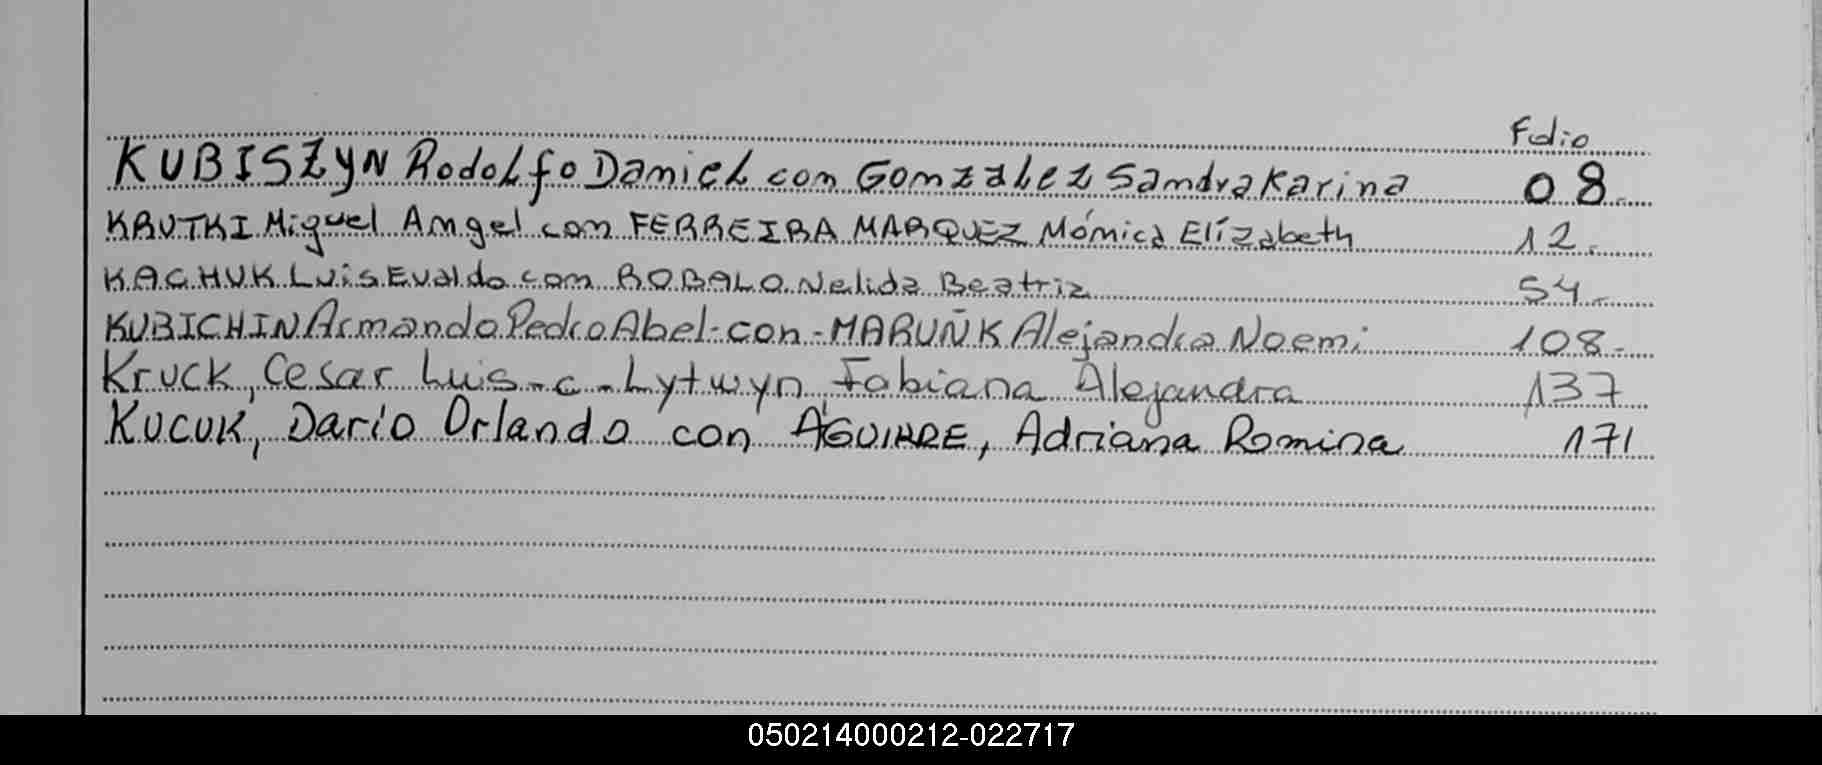 Folio
KUBISZYN Rodolfo Daniel con Gonzalez Sandra Karina 08.
KRUTKI Miguel Angel con FERREIRA MARQUEZ Mónica Elízabeth 12.
KACHUK Luis Evaldo con ROBALO Nelida Beatriz 54.
KUBICHIN Armando Pedro Abel - con - MARUÑK Alejandra Noemi 108.
Kruck, Cesar Luis - c - Lytwyn, Fabiana Alejandra 137
KUCUK, Dario Orlando con AGUIRRE, Adriana Romina 171
050214000212-022717